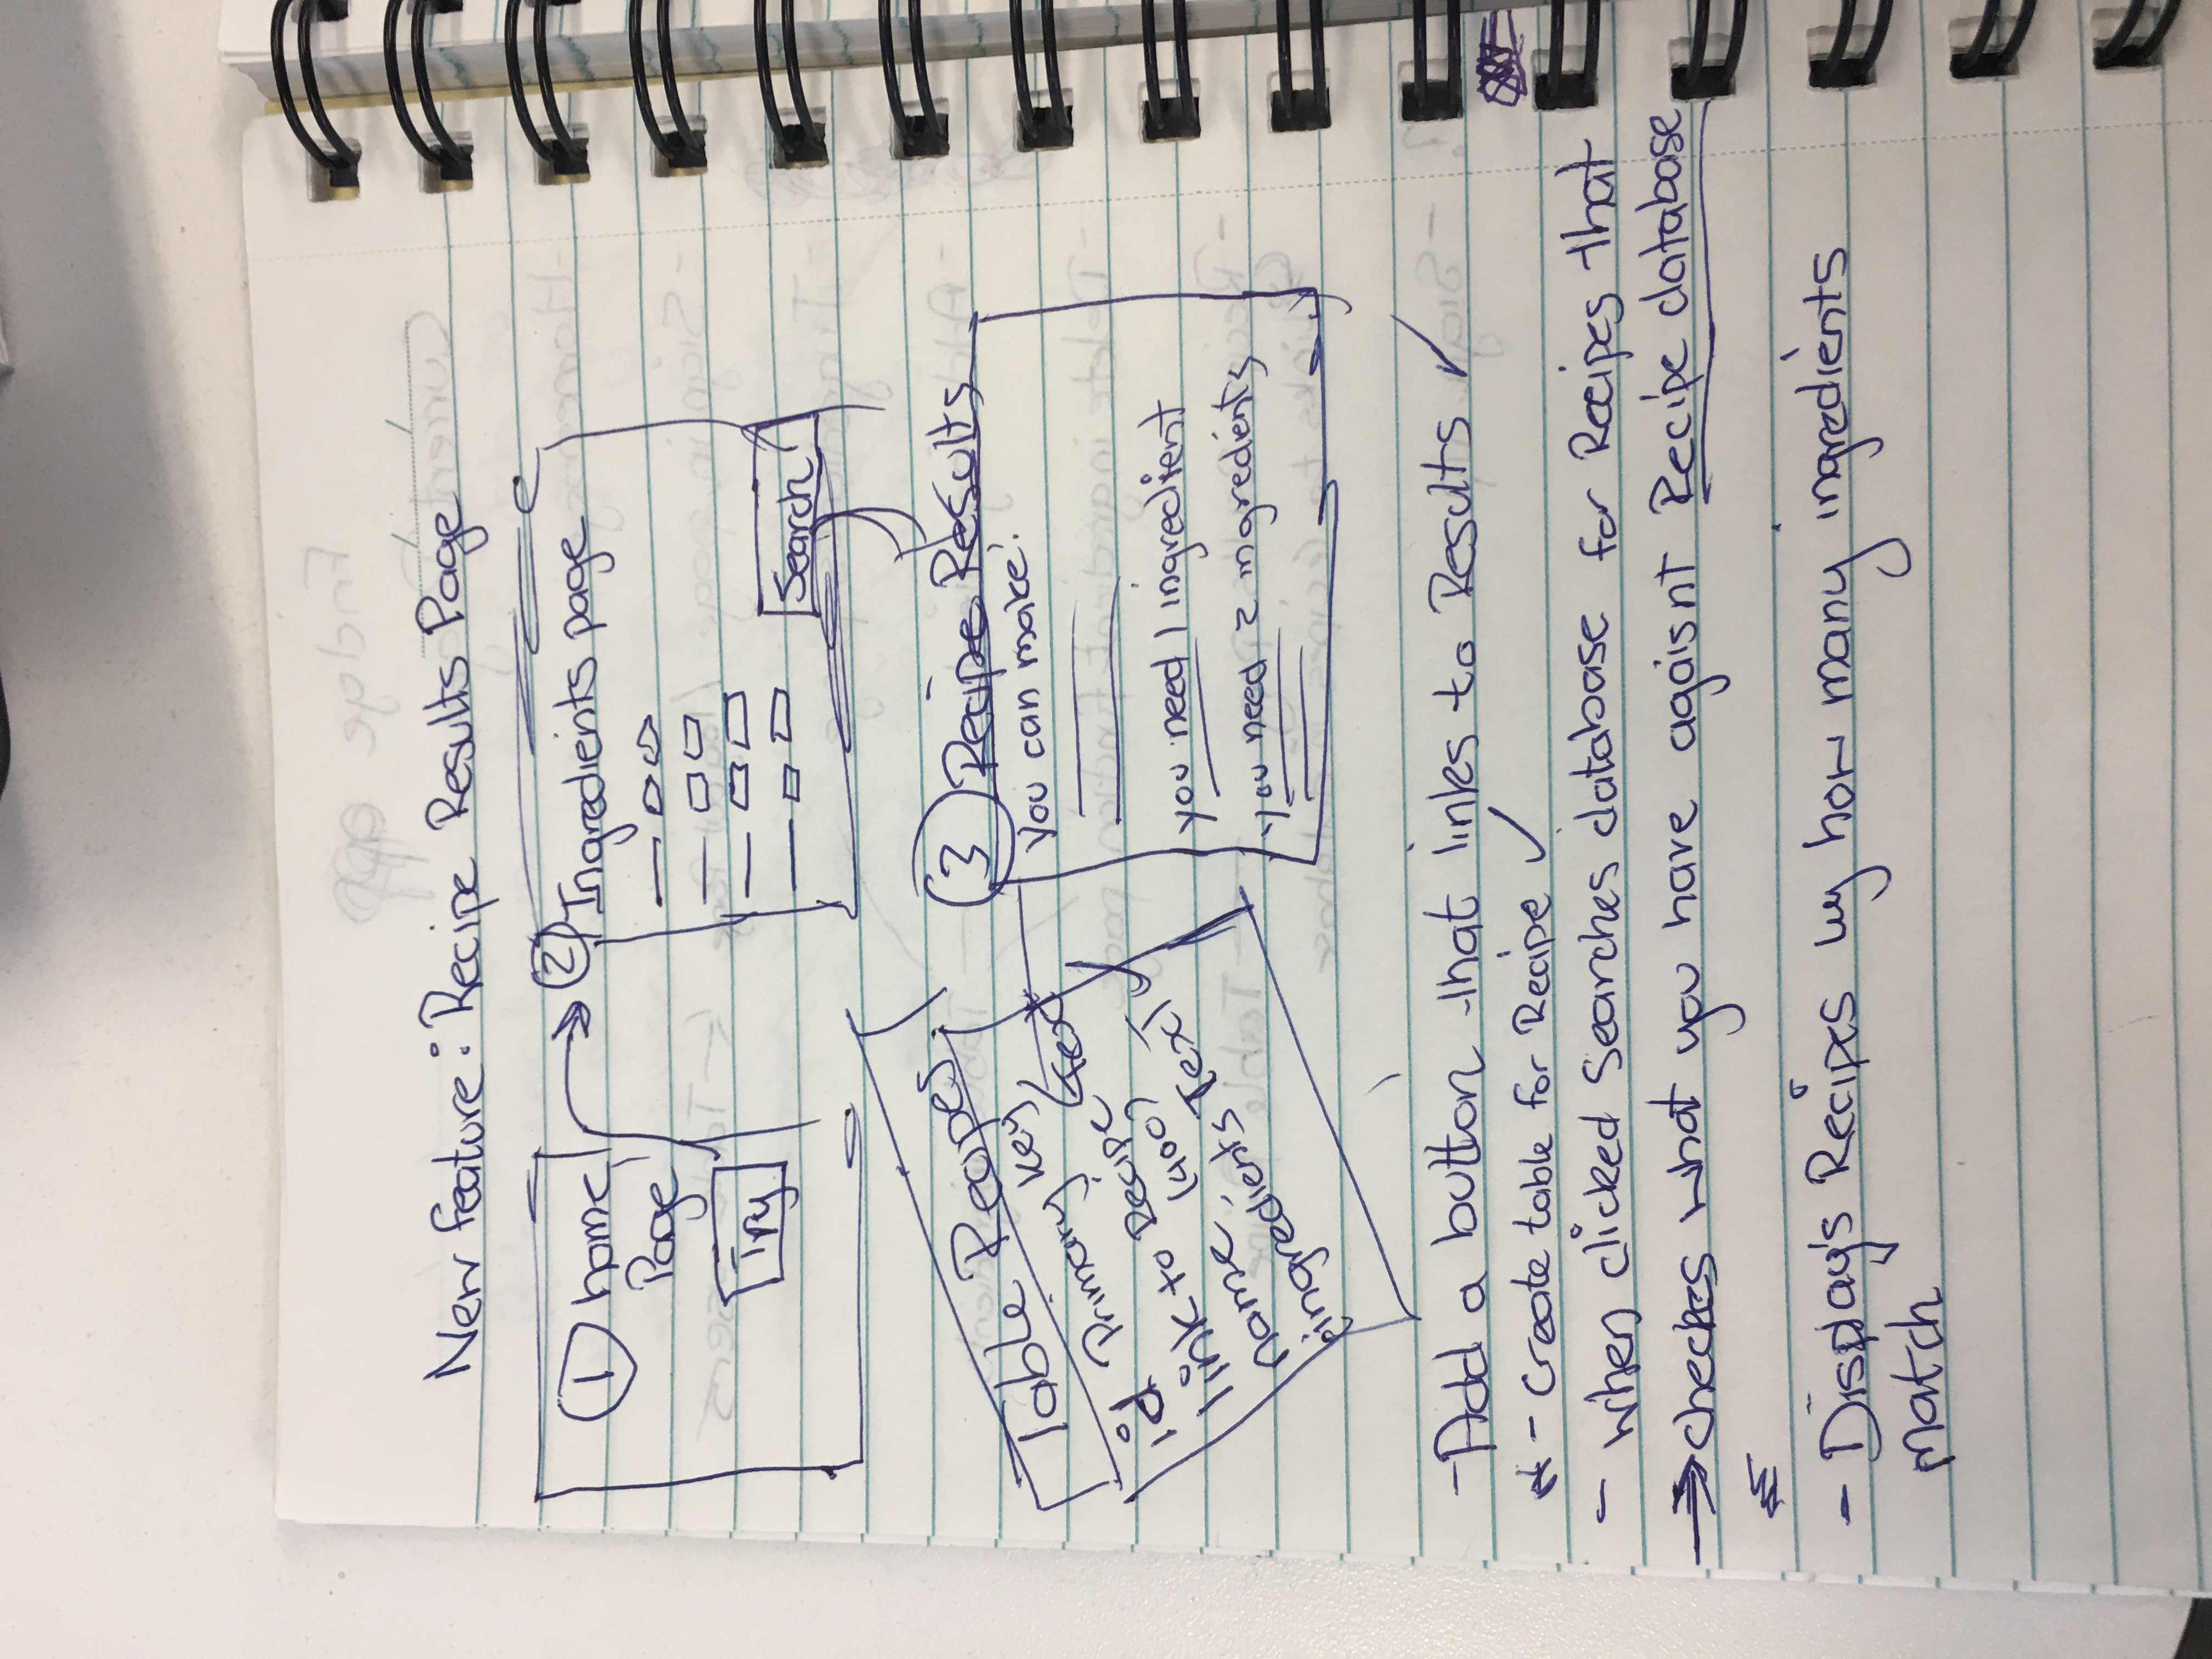 New feature: Recipe Results Page
1 home
Page
Try
2 Ingredients page
Search
Table Recipes
id Primary key
link to Recipe (Text
name (400)
ingredients Text
3 Recipe Results
You can make:
you need 1 ingredient
you need 2 ingredients
- Add a button that links to Results ✓
- Create table for Recipe ✓
- when clicked Searches database for Recipes that
→ checks what you have agaisnt Recipe database
- Display's Recipes by how many ingredients
match